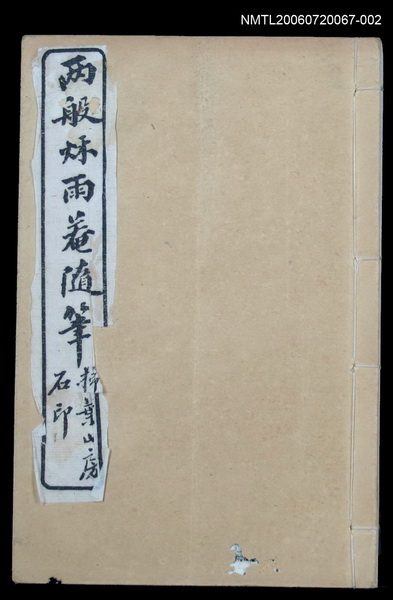 NMTL20060720067-002
两般秌雨菴随筆
掃葉山房
石印